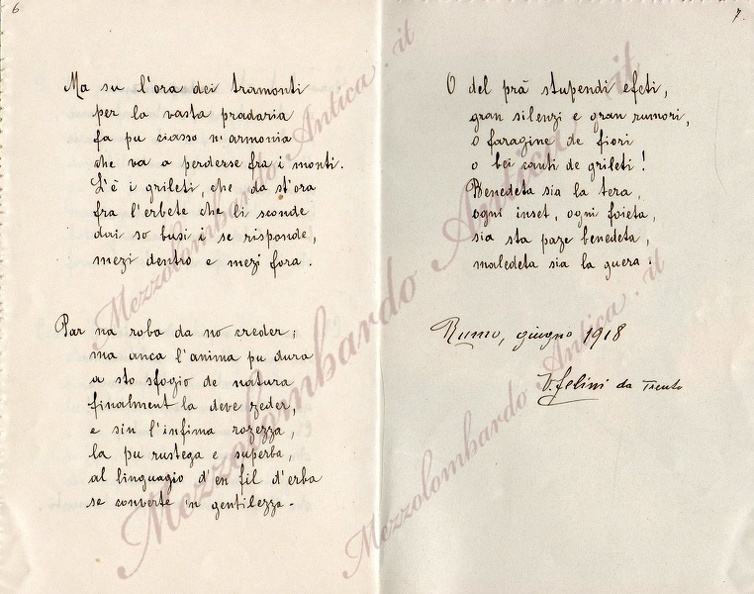 6
Ma su l'ora dei tramonti
per la vasta pradaria
fa pu ciasso n'armonia
che va a perderse fra i monti.
L'è i grileti, che da st'ora
fra l'erbete che li sconde
dai so busi i se risponde,
mezi dentro e mezi fora.
Par na roba da no creder;
ma anca l'anima pu dura
a sto sfogio de natura
finalment la deve zeder,
e sin l'infima rozezza,
la pu rustega e superba,
al linguagio d'en fil d'erba
se converte in gentilezza.
7.
O del prà stupendi efeti,
gran silenzi e gran rumori,
o faragine de fiori
o bei canti de grileti!
Benedeta sia la tera,
ogni inset, ogni foieta,
sia sta paze benedeta,
maledeta sia la guera.
Rumo, giugno 1918
V. Felini da Trento
Mezzolombardo Antica.it
Mezzolombardo Antica.it
Mezzolombardo Antica.it